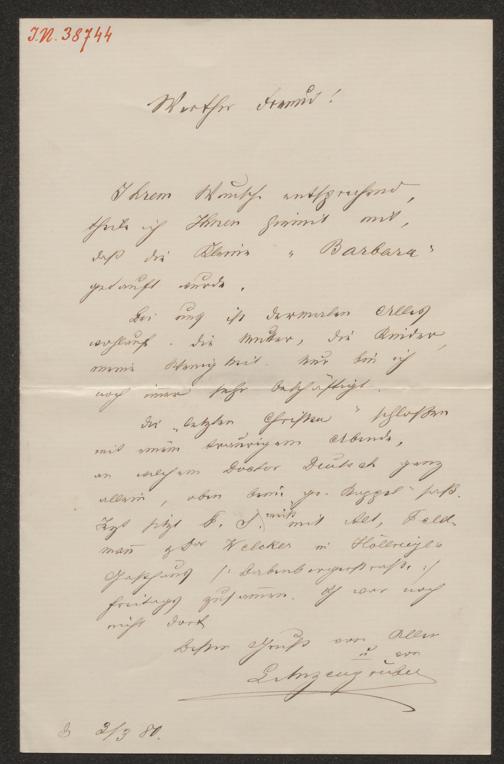 I.N. 38744
Werther Freund!
Ihrem Wunsche entsprechend,
theile ich Ihnen hiemit mit,
daß die Kleine „Barbara"
getauft wurde.
Bei uns ist dermalen Alles
wohlauf. die Mutter, die Kinder,
meine Wenigkeit. Nur bin ich
noch imer sehr beschäftigt.
Die „letzten Christen" schloßen
mit einem traurigen Abende,
an welchem Doctor Deutsch ganz
allein, oben beim saß.
Jezt sitzt mit Alt, Feld-
mañ Welcker in
Gasthaus
Freitags zusamen. Ich war noch
nicht dort
Besten Gruß von Allen
u von
LAnzengruber
2/3 80.